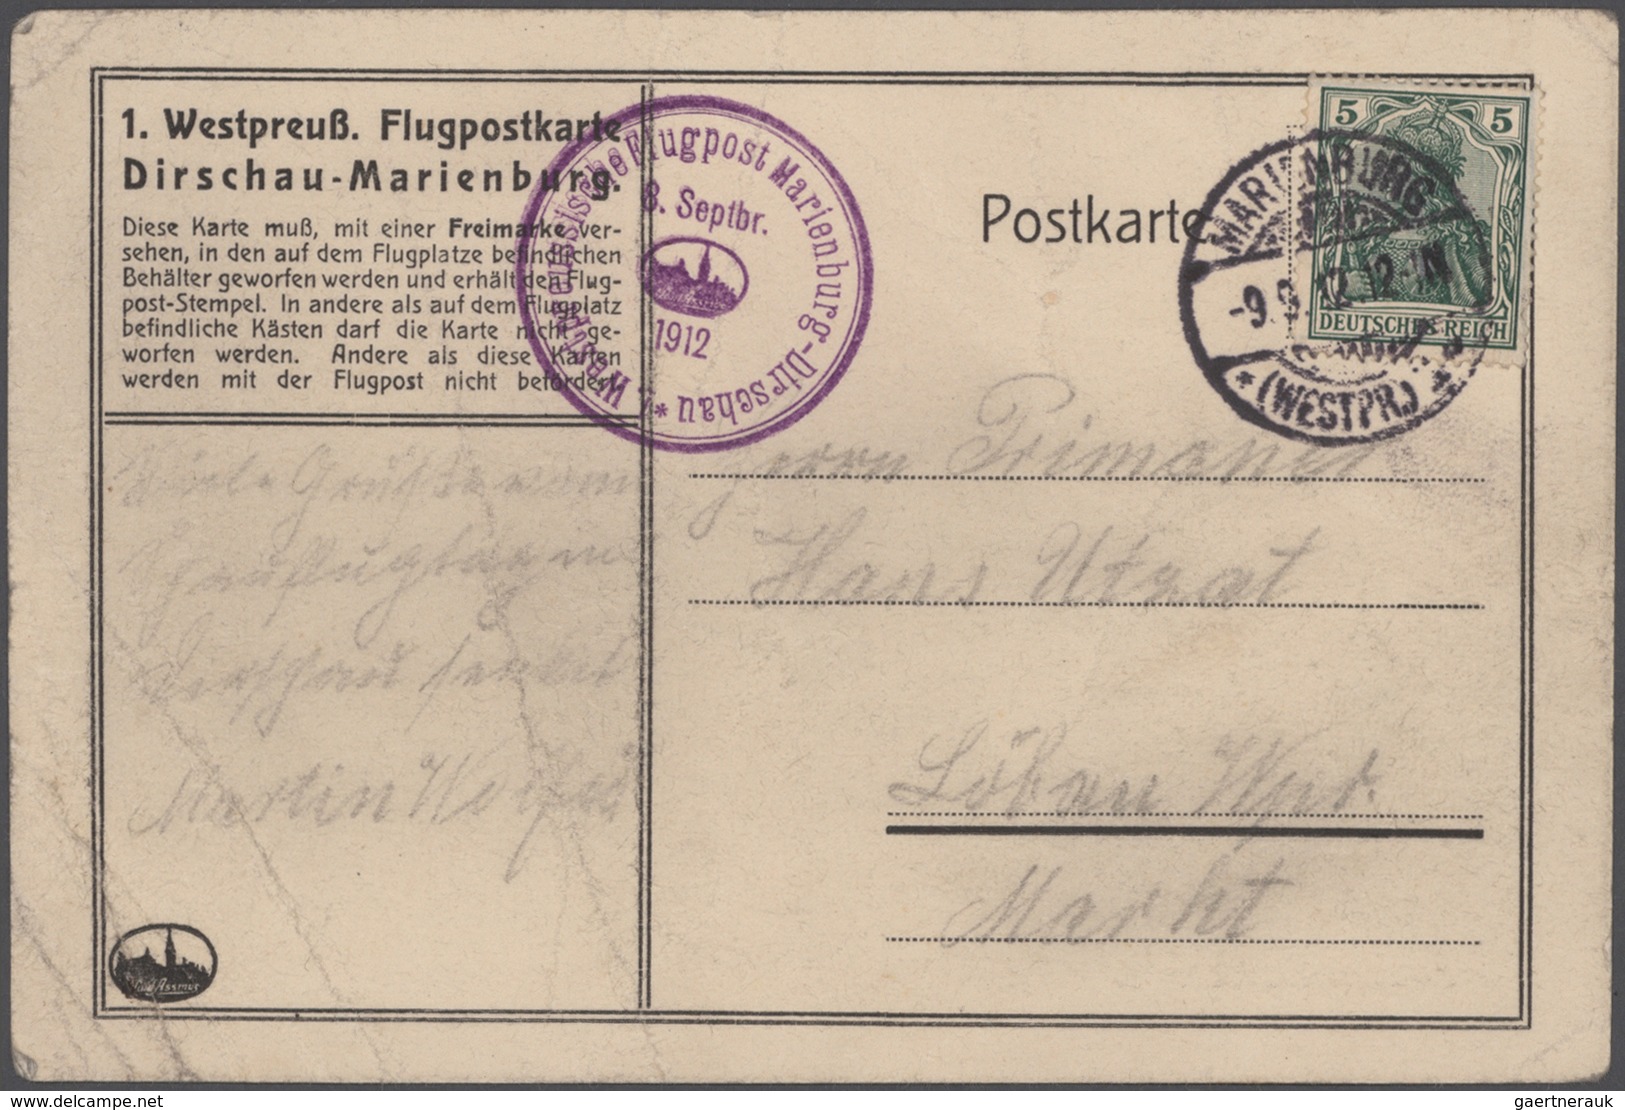 1. Westpreuß. Flugpostkarte
Dirschau-Marienburg.
Diese Karte muß, mit einer Freimarke ver-
sehen, in den auf dem Flugplatze befindlichen
Behälter geworfen werden und erhält den Flug-
post-Stempel. In andere als auf dem Flugplatz
befindliche Kästen darf die Karte nicht ge-
worfen werden. Andere als diese Karten
werden mit der Flugpost nicht befördert.
Westpreussische Flugpost Marienburg-Dirschau *
8. Septbr.
1912
Postkarte
5 5
DEUTSCHES REICH
MARIENBURG
-9.9.12.12-1N
* (WESTPR.) *
Viele Grüße vom
Schauflugtag in
Dirschau sendet
Martin
Herrn Primaner
Hans Utzat
Löbau Wpr.
Markt
Assmus
delcampe.net
gaertnerauk